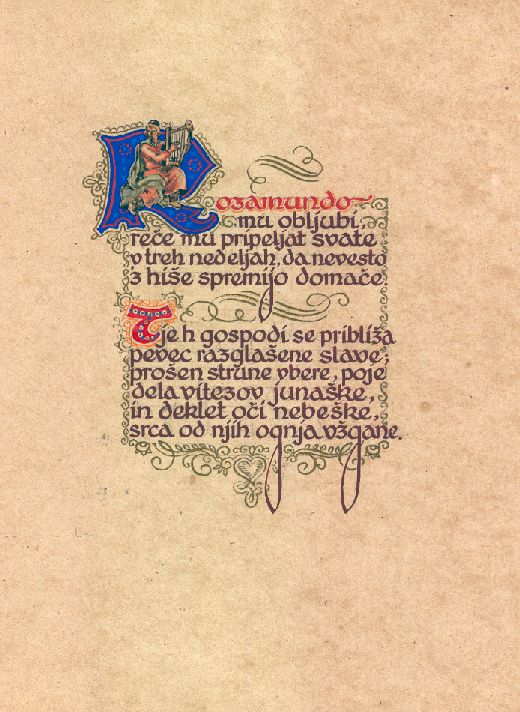 Rozamundo
mu obljubi,
reče mu pripeljat svate
v treh nedeljah, da nevesto
z hiše spremijo domače.
Tje h gospodi se približa
pevec razglašene slave;
prošen strune vbere, poje
dela vitezov junaške,
in deklet oči nebeške,
srca od njih ognja vžgane.